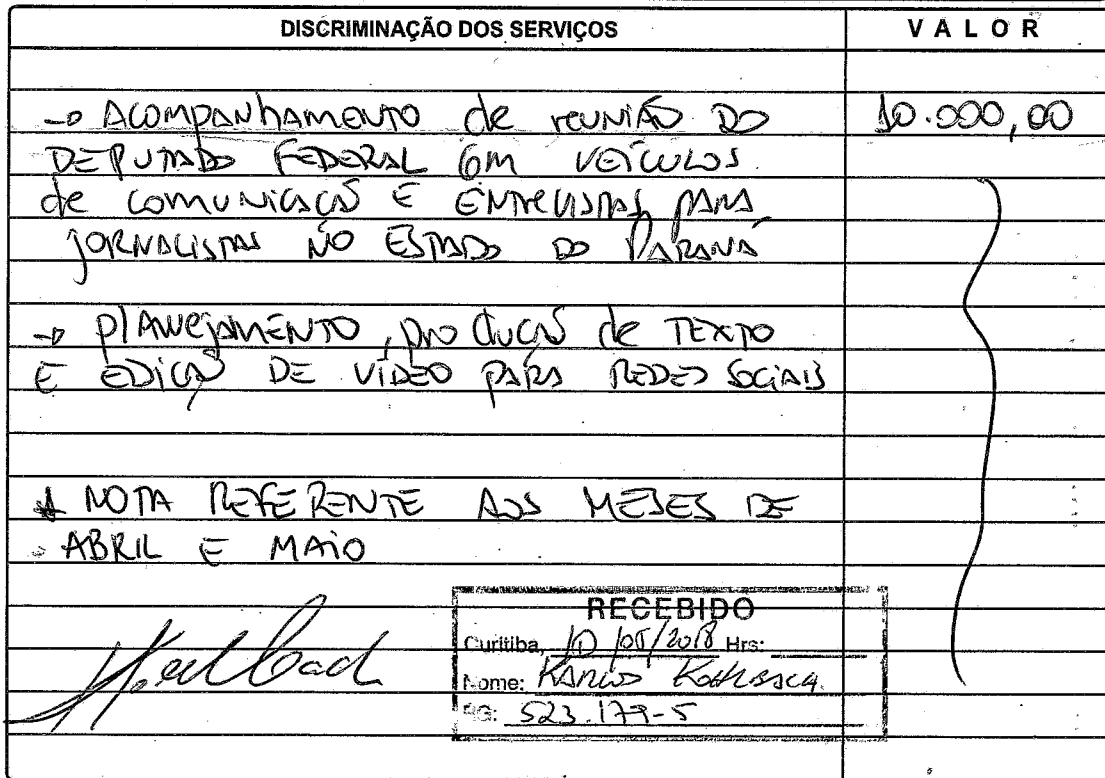 DISCRIMINAÇÃO DOS SERVIÇOS VALOR
→ ACOMPANHAMENTO de reunião DO 10.000,00
DEPUTADO FEDERAL EM VEÍCULOS
de comunicação E ENTREVISTAS PARA
JORNALISTAS NO ESTADO DO PARANÁ
→ PLANEJAMENTO, produção de TEXTO
E EDIÇÃO DE VÍDEO PARA REDES SOCIAIS
* NOTA REFERENTE AOS MESES DE
ABRIL E MAIO
RECEBIDO
Curitiba, 10/05/2018 Hrs:
Nome: Karlos
RG: 523.179-5